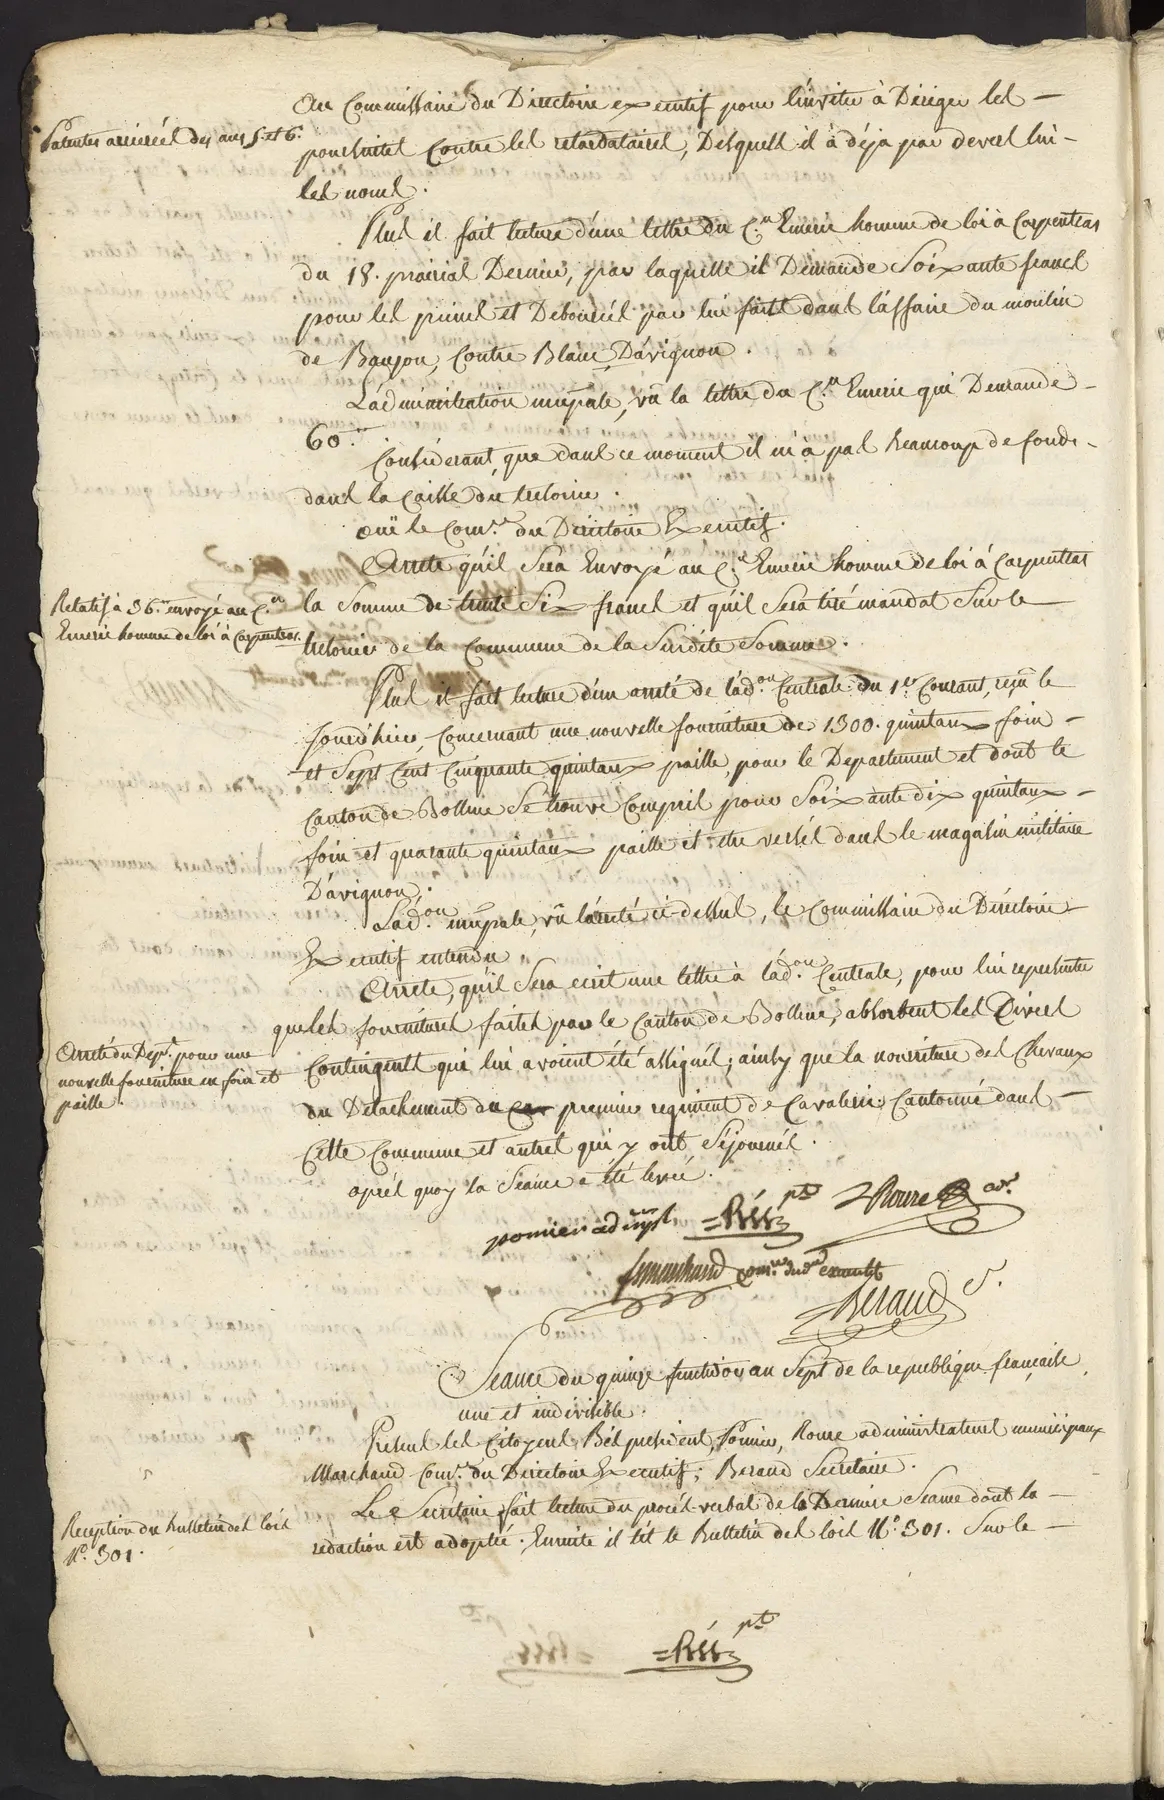 au Commissaire du Directoire executif pour l'inviter à Diriger les
Patentes arrierées des ans 5. et 6.
poursuites Contre les retardataires, Desquels il à déja par devers lui
les noms.
Plus il fait lecture d'une lettre du C.en Emerie homme de loi à Carpentras
du 18. prairial Dernier, par laquelle il Demande Soixante francs
pour les peines et Deboursés par lui faits dans l'affaire du moulin
de Baujon, Contre Blanc, D'avignon.
L'administration mu͞pale, vû la lettre du C.en Emerie qui Demande
60.
Considerant, que dans ce moment il n'a pas Beaucoup de fonds
dans la Caisse du tresorier.
oui le Com.re du Directoire Executif.
Arrete qu'il Sera Envoyé au C.en Emerie homme de loi à Carpentras
Relatif à 36. envoyé au C.en
Emerie homme de loi à Carpentras.
la Somme de trente Six francs et qu'il Sera tiré mandat Sur le
tresorier de la Commune de la Susdite Somme.
Plus il fait lecture d'un arreté de l'ad.on Centrale du 1.er Courant, reçû le
jourd'hier, Concernant une nouvelle fourniture de 1300. quintaux foin
et Sept Cent Cinquante quintaux paille, pour le Departement et dont le
Canton de Bollene Se trouve Compris pour Soixante dix quintaux
foin et quarante quintaux paille et etre versés dans le magasin militaire
D'avignon.
L'ad.on mu͞pale, vû l'arreté ci-dessus, le Commissaire du Directoire
Executif entendu
Arrete, qu'il Sera ecrit une lettre à l'ad.on Centrale, pour lui representer
que les fournitures faites par le Canton de Bollene, absorbent les Divers
Arreté du Dep.t pour une
nouvelle fourniture en foin et
paille.
Contingents qui lui avoient été assignés; ainsy que la nourriture des Chevaux
du Detachement du premier regiment de Cavalerie, Cantonné dans
Cette Commune et autres qui y ont Séjournés.
après quoy la Séance a été levée.
pomier ad mpl =Béss pdt Roure ad.r
Marchand com.re du d.re executif
Beraud S.
Seance du quinze fructidor an Sept de la republique française
une et indivisible.
Presens les Citoyens Bés president, Pomier, Roure administrateurs municipaux
Marchand Com.re du Directoire Executif; Beraud Secretaire.
Le Secretaire fait lecture du procés-verbal de la Derniere Seance dont la
Reception du Bulletin des lois
N.o 301.
redaction est adoptée. Ensuite il lit le Bulletin des lois N.o 301. Sur le
=Béss pdt